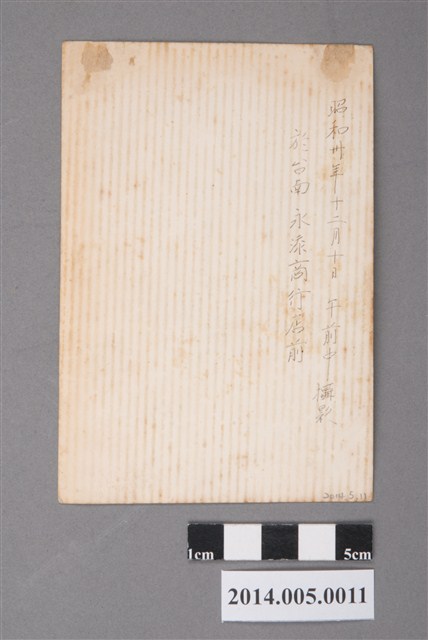 昭和卅年十二月十日 午前中 攝影
於台南 永泰商行店前
2014.5.11
1cm
5cm
2014.005.0011